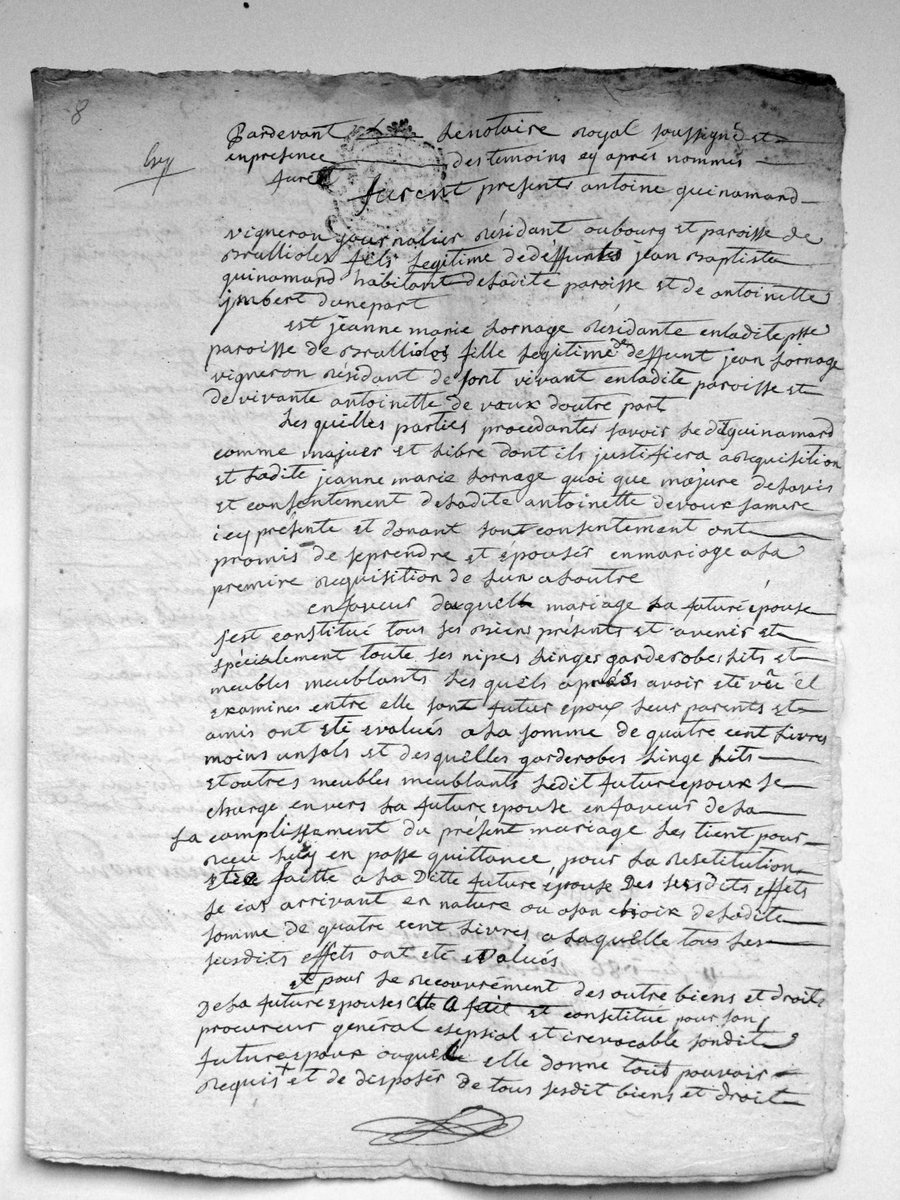 8
Pardevant Le notaire royal soussigné et
en presence des temoins cy aprés nommés
furent
furent presents antoine guinamand
vigneron journalier résidant au bourg et paroisse de
Brulliolex fils Legitime de deffunts jean Baptiste
guinamand habitant de Ladite paroisse et de antoinette
imbert dune part
Et jeanne marie Lornage résidante en Ladite psse
paroisse de Brullioles fille Legitime de deffunt jean Lornage
vigneron résidant de sont vivant en Ladite paroisse et
de vivante antoinette de vaux doutre part
Les quilles parties procédantes savoir Le dt guinamand
comme majuer et Libre dont ils justifiera a Requisition
et Ladite jeanne marie Lornage quoi que majure de Lavis
et consentement de Ladite antoinette de vaux sa mere
icy presente et donant sont consentement ont
promis de se prendre et epouser en mariage a La
premire requisition de Lun a Loutre
en faveur duquell mariage La future épouse
sest constitué tous ses Biens présents et avenir et
spécialement toute ses nipes Linges garderobes Lits et
meubles meublants Les quels aprés avoir eté vù et
examinés entre elle sont futur epoux Leur parents et
amis ont eté evalués a La somme de quatre cent Livres
moins un sols et des quelles garderobes Linge Lits
et autres meubles meublants Ledit future epoux se
charge envers La future epouse en faveur de La
La complissement du présent mariage Les tient pour
recu Luy en passe quittance pour La resetitution
etre faitte a La Ditte future épouse Des susdits effets
Le cas arrivant en nature ou a son choix de Ladite
somme de quatre cent Livres a Laquelle tous Les
susdits effets ont eté evalués
et pour Le recouvrément des outre biens et droits
De La future epouses elle a fait et constitue pour son
procureur général esepsial et irevocable sondite
future epoux auquel elle donne tous pouvoir
requis et de desposér de tous sesdit biens et droit